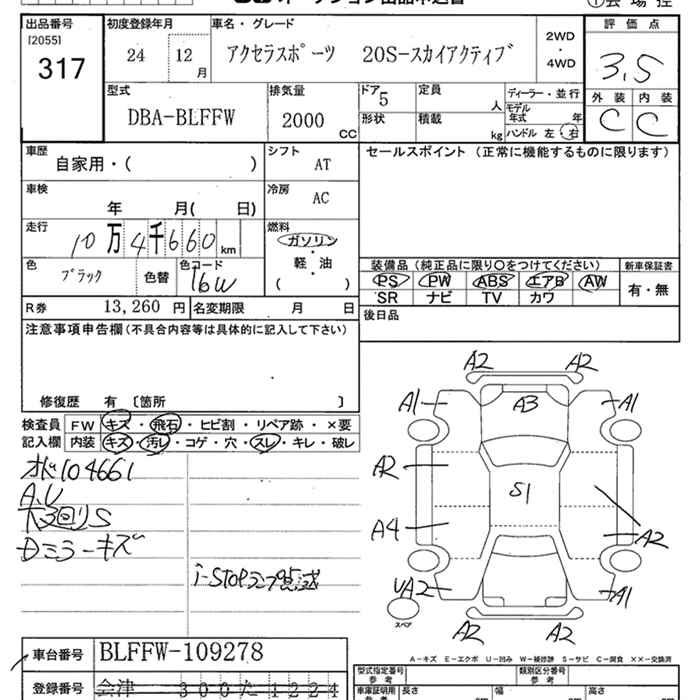 オークション出品申込書
①会場控
出品番号 初度登録年月 車名・グレード 評価点
[2055] 317
24 12月
アクセラスポーツ 20S-スカイアクティブ
2WD・4WD
3.5
型式 排気量 ドア 定員 ディーラー・並行 外装 内装
DBA-BLFFW 2000CC 5 人 モデル年式 年 C C
形状 積載 kg ハンドル 左・右
車歴 シフト セールスポイント (正常に機能するものに限ります)
自家用・( ) AT
車検 冷房
年 月( 日) AC
走行 燃料
10万4千660km ガソリン・軽・油 ( )
色 色コード 装備品 (純正品に限り○をつけてください) 新車保証書
ブラック 色替 16W PS PW ABS エアB AW 有・無
SR ナビ TV カワ
R券 13,260円 名変期限 月 日 後日品
注意事項申告欄(不具合内容等は具体的に記入して下さい)
修復歴 有 〔箇所 〕
検査員 FW キズ・飛石・ヒビ割・リペア跡・×要
記入欄 内装 キズ・汚レ・コゲ・穴・スレ・キレ・破レ
104661
A.U
下廻りS
Dミラーキズ
i-STOPランプ点滅
A2 A2
A1 A3 A1
A2 S1
A4 A2
UA2 A1
スペア
A2 A2
A-キズ E-エクボ U-凹み W-補修跡 S-サビ C-腐食 ××-交換済
車台番号 BLFFW-109278
登録番号 会津 300た1224
型式指定番号 類別区分番号
参考 参考
車庫証明用 長さ 幅 高さ
参考 cm cm cm